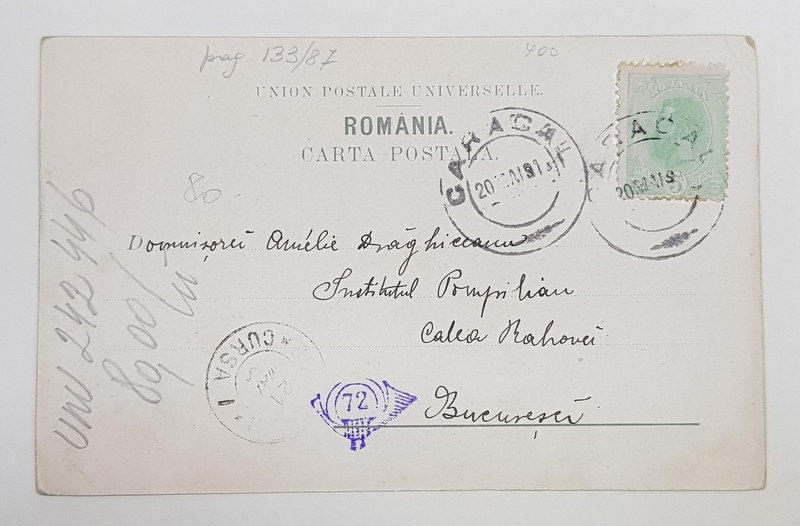 prag 133/87
400
UNION POSTALE UNIVERSELLE.
ROMÂNIA.
CARTA POSTALA.
CARACAL
20 MAI 913
CARACAL
20 MAI 9
80
Domnișorei Amélie Drăghiceanu
Institutul Pompilian
Calea Rahovei
București
CURSA I
72
UNV 242 446
8900/